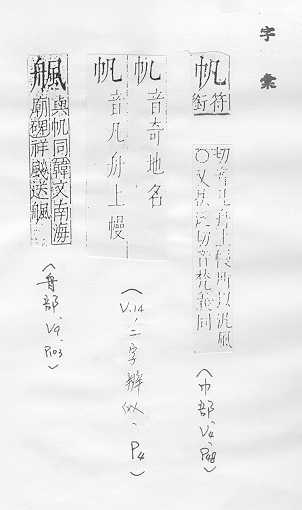 字彙
帆
符
銜
切音凡舟上幔所以汎風
○又扶泛切音梵義同
(巾部、V4、P48)
帆音奇地名
帆音凡舟上幔
(V.14、二字辨似、P4)
䑺
與帆同韓文南海
廟碑祥飈送䑺
(舟部、V9、P103)